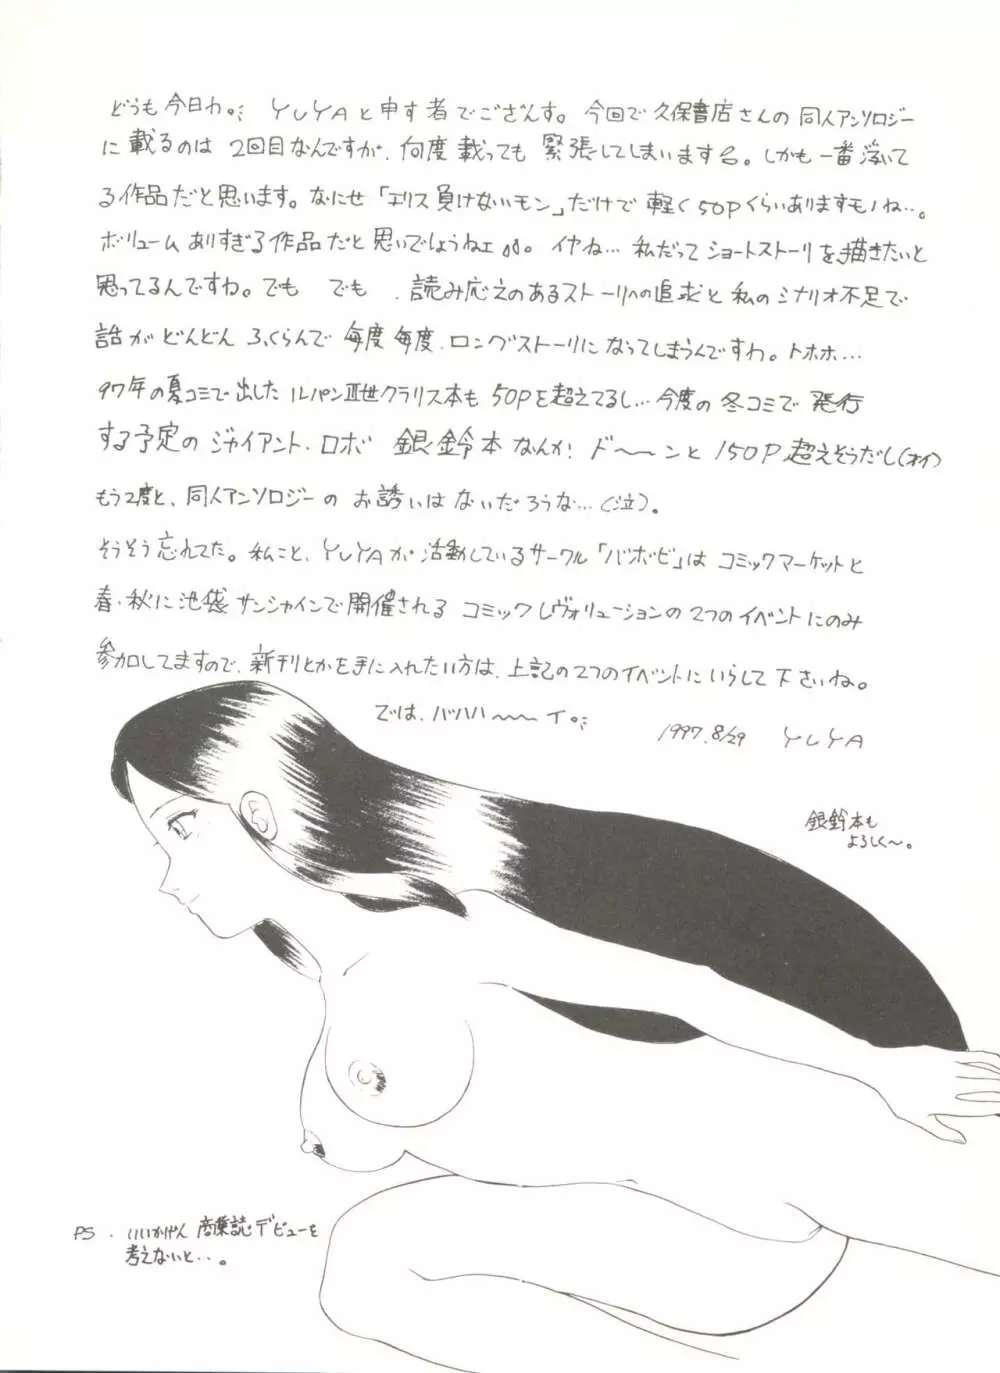 どうも今日わ。YUYAと申す者でござんす。今回で久保書店さんの同人アンソロジー
に載るのは2回目なんですが、何度載っても緊張してしまいますね。しかも一番浮いて
る作品だと思います。なにせ「エリス負けないモン」だけで軽く50Pくらいありますモノね…。
ボリュームありすぎる作品だと思いでしょうねェ。イヤね…私だってショートストーリを描きたいと
思ってるんですわ。でも でも、読み応えのあるストーリへの追求と私のシナリオ不足で
話がどんどんふくらんで毎度毎度、ロングストーリになってしまうんですわ。トホホ…
97年の夏コミで出したルパンⅢ世クラリス本も50Pを超えてるし…今度の冬コミで発行
する予定のジャイアント・ロボ 銀鈴本なんか! ド〜〜ンと150P超えそうだし(オイ)
もう2度と、同人アンソロジーのお誘いはないだろうな…(泣)。
そうそう忘れてた。私こと、YUYAが活動しているサークル「バボビ」はコミックマーケットと
春・秋に池袋サンシャインで開催されるコミックレヴォリューションの2つのイベントにのみ
参加してますので、新刊とかを手に入れたい方は、上記の2つのイベントにいらして下さいね。
では、バハハ〜〜イ。
1997.8/29 YUYA
銀鈴本も
よろしく〜。
PS. いいかげん商業誌デビューを
考えないと…。